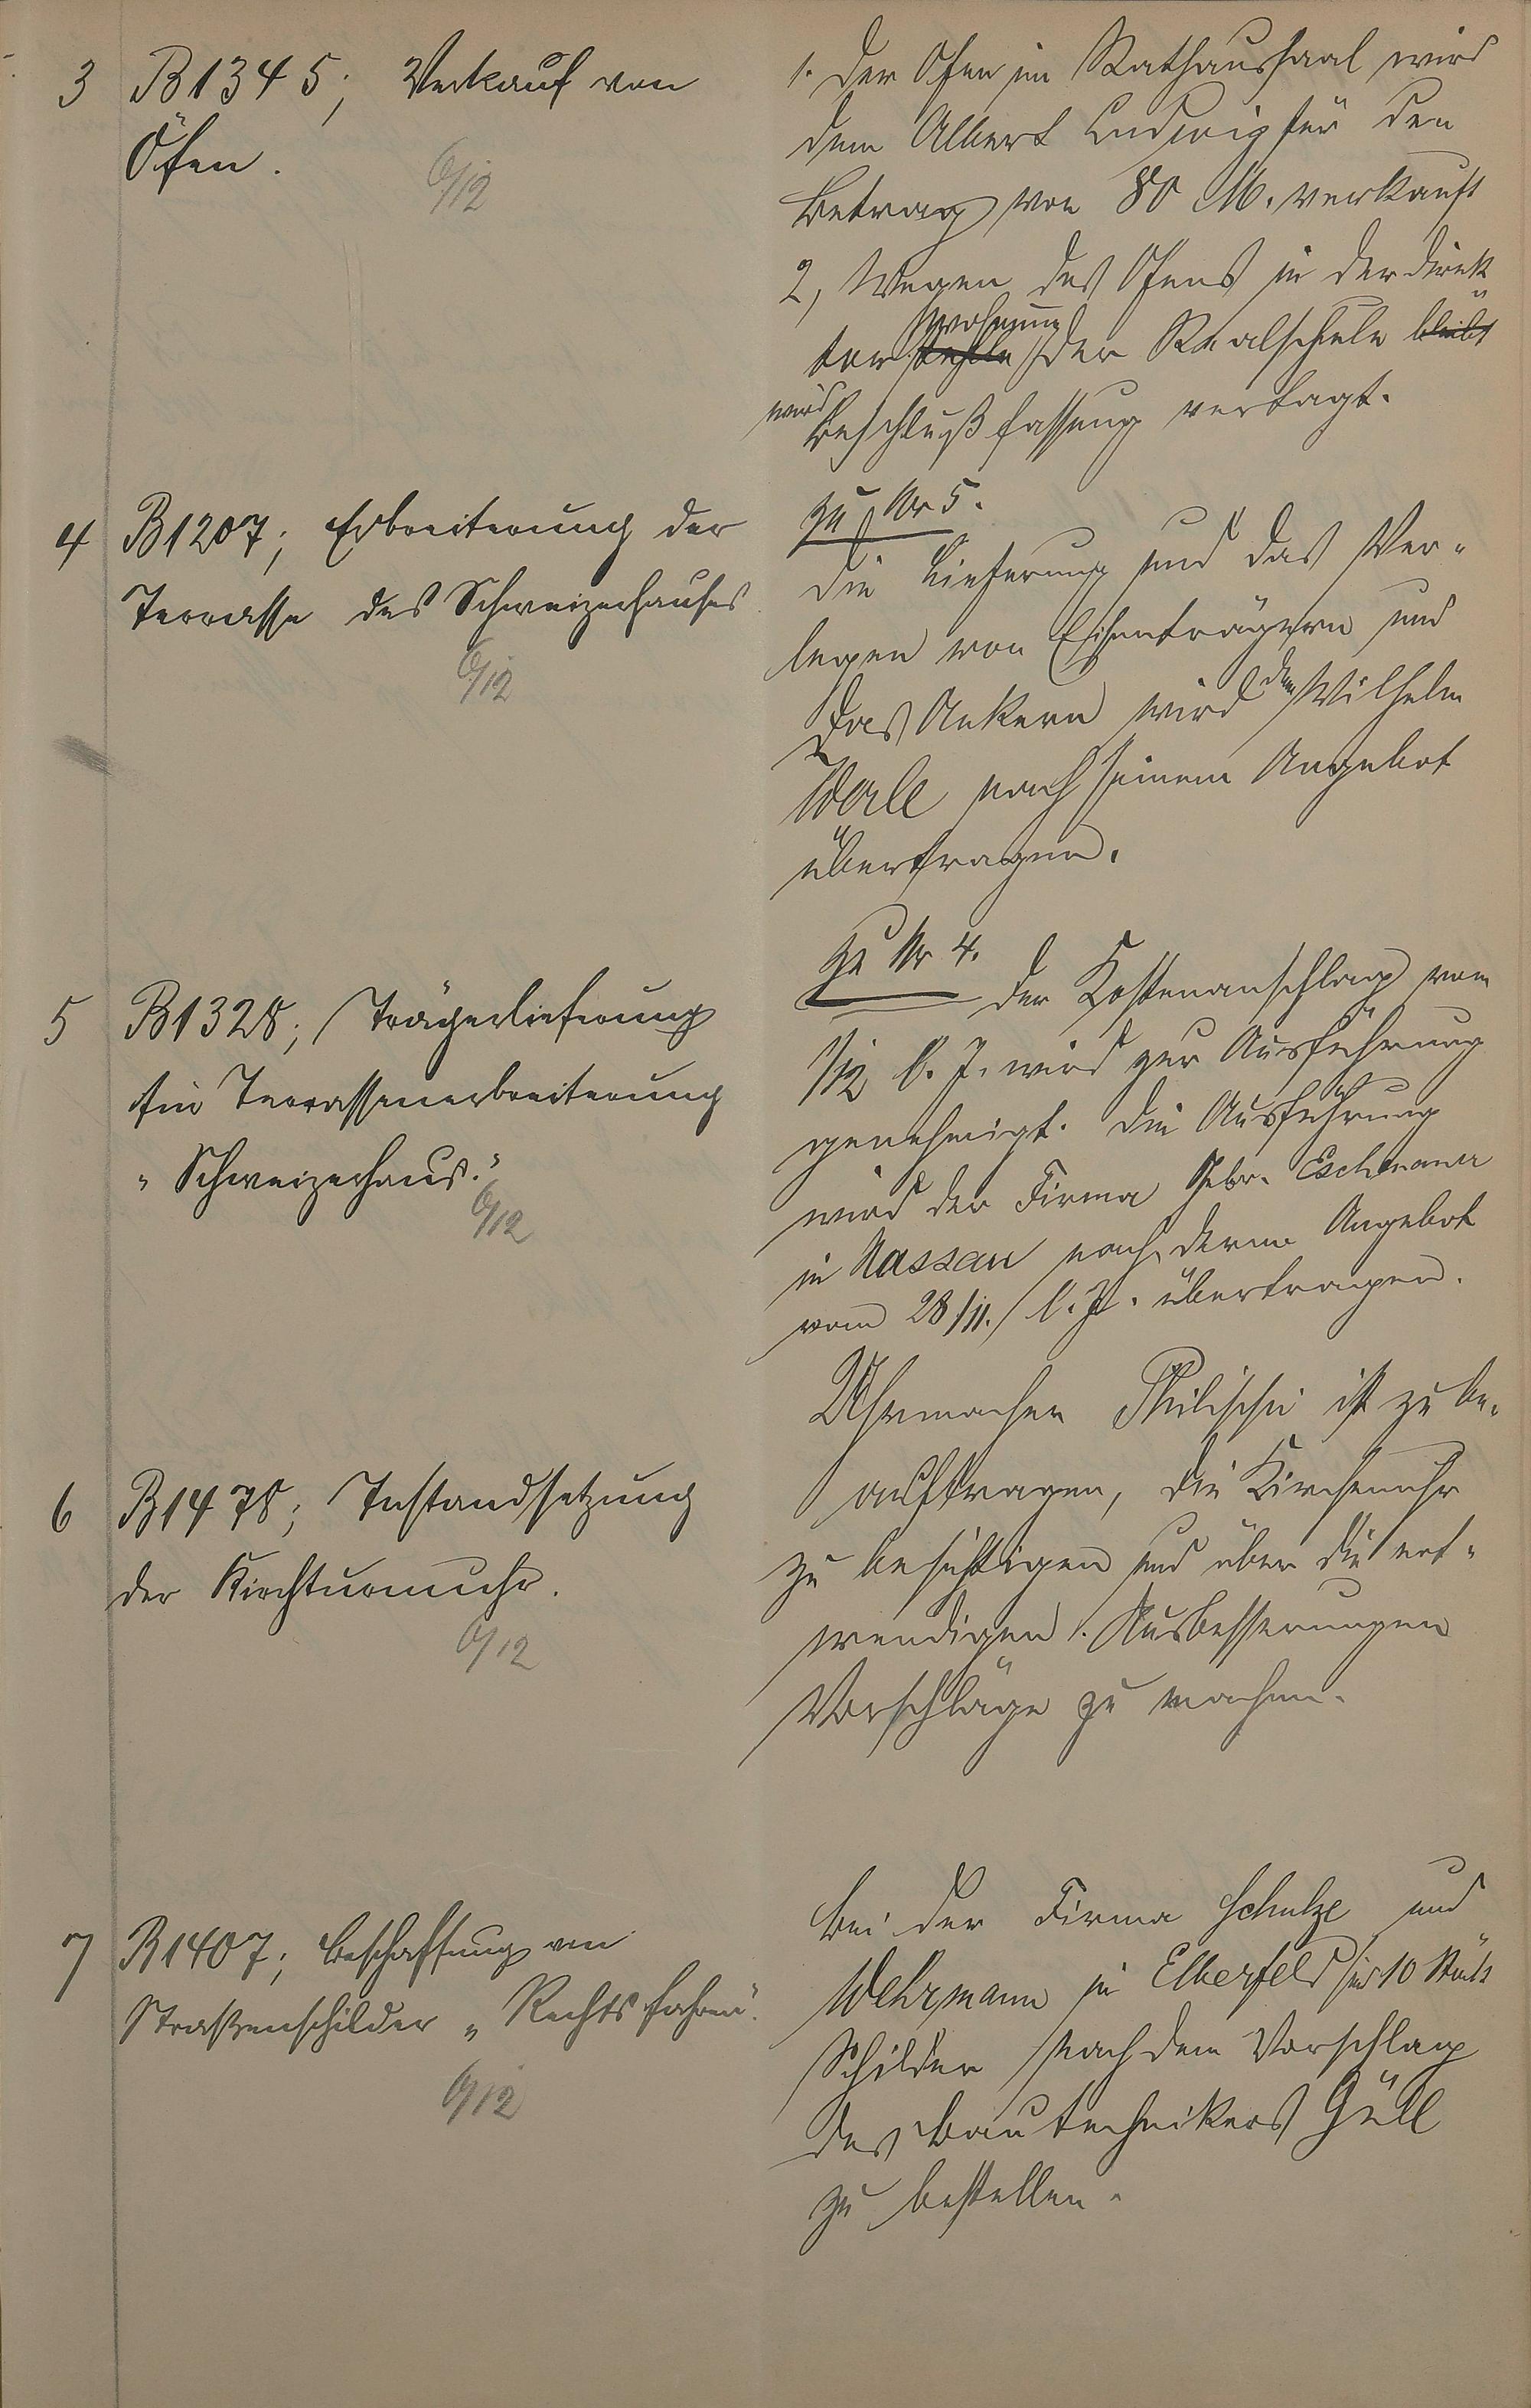 3 B 1345; Verkauf von
Öfen.
6/12
1. Der Ofen im Rathaussaal wird
dem Albert Ludwig für den
Betrag von 80 M. verkauft
2, Wegen des Ofens in der Direk-
tor wohnung der Realschule bleibt
wird Beschlußfassung vertagt.
4 B 1207; Erbreiterung der
Terrasse des Schweizerhauses
6/12
zu Nr 5.
Die Lieferung und das Ver-
legen von Eisenträgern und
das Ankern wird dem Wilhelm
nach seinem Angebot
übertragen.
5 B 1328; Trägerlieferung
für Terrassenerbreiterung
"Schweizerhaus."
6/12
zu Nr 4.
Der Kostenanschlag vom
1/12 l. J. wird zur Ausführung
genehmigt. Die Ausführung
wird der Firma Gebr. Eschenauer
in Nassau nach deren Angebot
vom 28/11. l. J. übertragen.
6 B 1478; Instandsetzung
der Kirchturmuhr.
6/12
Uhrmacher ist zu be-
auftragen, die Kirchenuhr
zu besichtigen und über die not-
wendigen Ausbesserungen
Vorschläge zu machen.
7 B 1407; Beschaffung von
Straßenschilder "Rechts fahren".
6/12
Bei der Firma Schulze und
Wehrmann in Elberfeld sind 10 Stück
Schilder nach dem Vorschlag
des Bautechnikers Güll
zu bestellen.